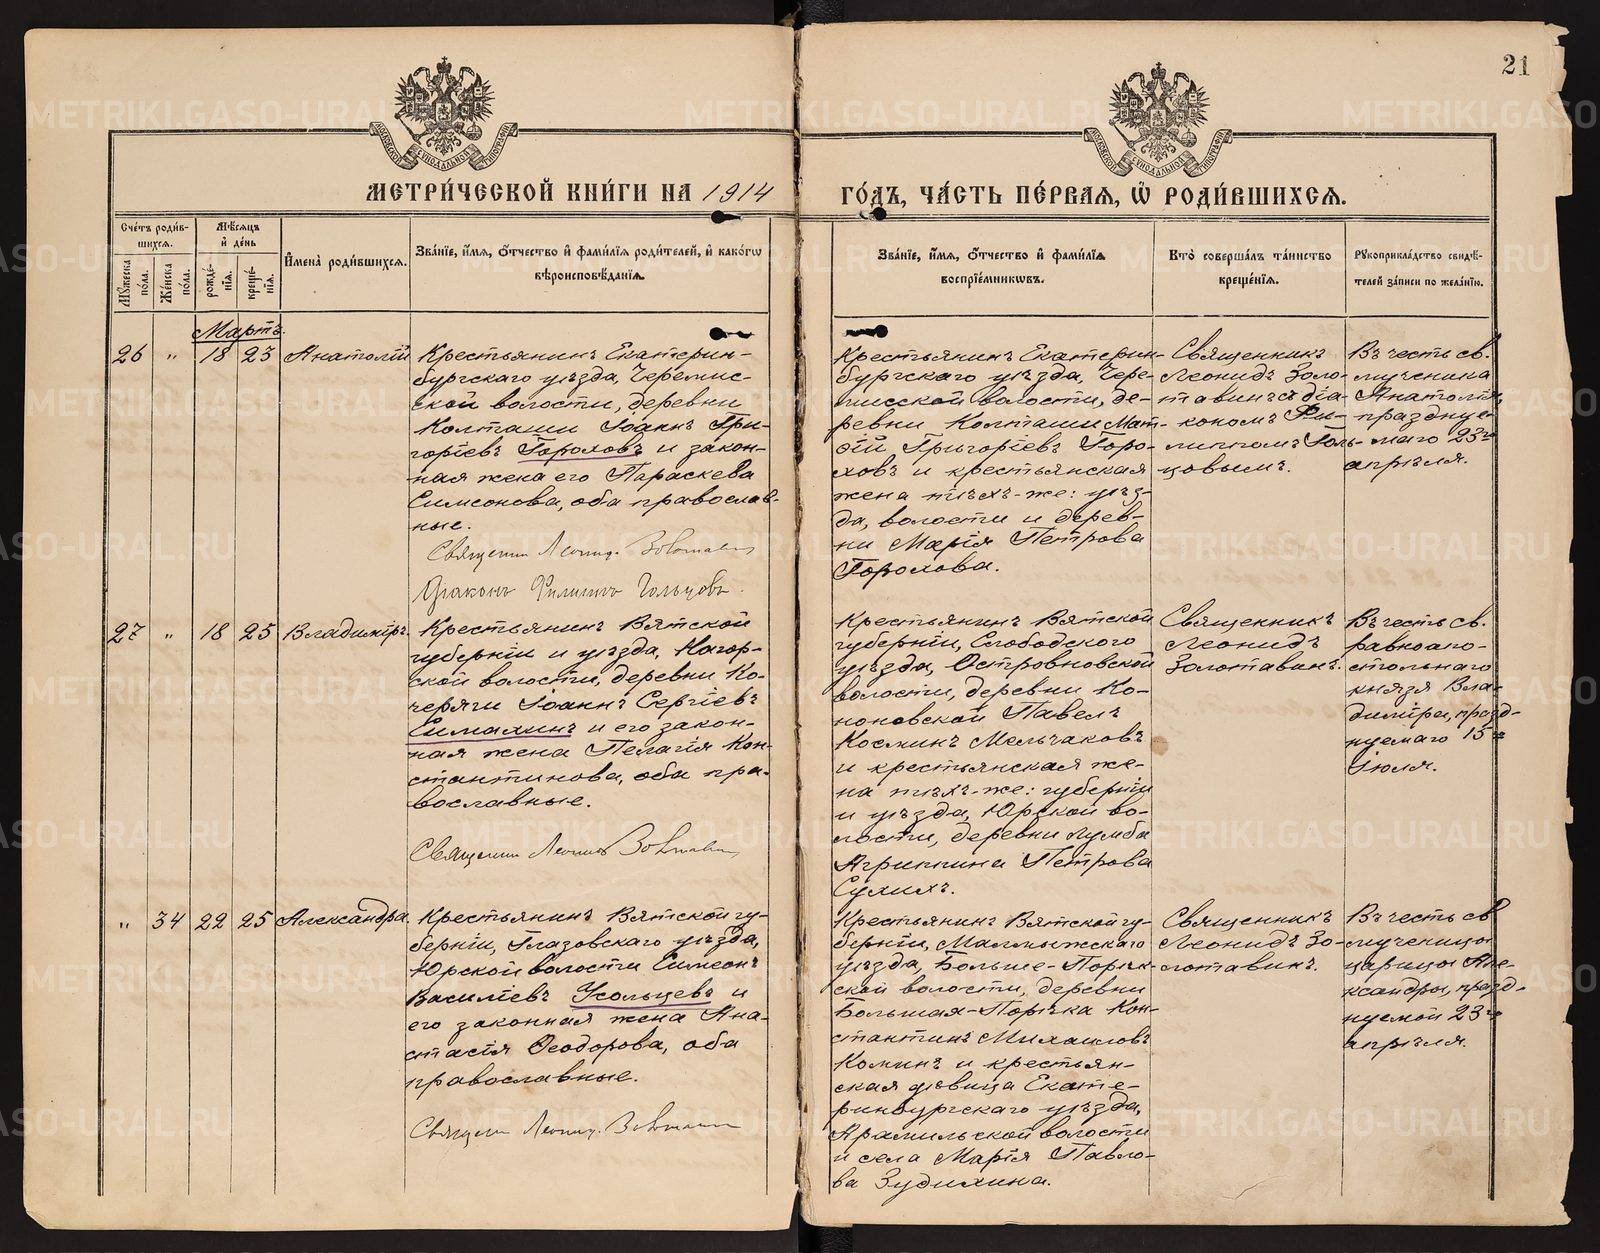 21
МОСКОВСКОЙ СУНОДАЛЬНОЙ ТИПОГРАФІИ
МОСКОВСКОЙ СУНОДАЛЬНОЙ ТИПОГРАФІИ
МЕТРИ́ЧЕСКОЙ КНИ́ГИ НА 1914
ГО́ДЪ, ЧА́СТЬ ПЕ́РВАЯ, Ѡ҆ РОДИ́ВШИХСЯ.
Сче́тъ роди́в-
шихся.
Мꙋ́жеска по́ла.
Же́нска по́ла.
Мѣ́сяцъ
и҆ де́нь
рожде́-
нїя.
креще́-
нїя.
И҆мена̀ роди́вшихся.
Зва́нїе, и҆́мя, ѻ҆́тчество и҆ фами́лїя роди́телей, и҆ како́гѡ
вѣроисповѣ́данїя.
Зва́нїе, и҆́мя, ѻ҆́тчество и҆ фами́лїя
воспрїе́мникѡвъ.
Кто̀ соверша́лъ та́инство
креще́нїя.
Рꙋкоприкла́дство свидѣ́-
телей за́писи по жела́нїю.
Мартъ.
26 " 18 23 Анатолій
Крестьянинъ Екатерин-
бургскаго уѣзда, Черемис-
ской волости, деревни
Колташи Іоаннъ Гри-
горіевъ Гороховъ и закон-
ная жена его Параскева
Симеонова, оба православ-
ные.
Священник Леонид Золотавин
Діаконъ Филиппъ Гольцовъ.
Крестьянинъ Екатерин-
бургскаго уѣзда, Чере-
мисской волости, де-
ревни Колташи Мат-
ѳій Григоріевъ Горо-
ховъ и крестьянская
жена тѣхъ-же: уѣз-
да, волости и дерев-
ни Марія Петрова
Горохова.
Священникъ
Леонидъ Золо-
тавинъ съ діа-
кономъ Фи-
липпомъ Голь-
цовымъ.
Въ честь св.
мученика
Анатолія,
празднуе-
маго 23го
апрѣля.
27 " 18 25 Владиміръ.
Крестьянинъ Вятской
губерніи и уѣзда, Кагор-
ской волости, деревни Ко-
черяги Іоаннъ Сергіевъ
Симахинъ и его закон-
ная жена Пелагія Кон-
стантинова, оба пра-
вославные.
Священник Леонид Золотавин
Крестьянинъ Вятской
губерніи, Слободского
уѣзда, Островновской
волости, деревни Ко-
ноновской Павелъ
Космин Мельчаковъ
и крестьянская же-
на тѣхъ-же: губерніи
и уѣзда, Юрской во-
лости, деревни Лумба
Агриппина Петрова
Сухихъ.
Священникъ
Леонидъ
Золотавинъ.
Въ честь св.
равноапо-
стольнаго
князя Вла-
диміра, празд-
нуемаго 15го
Іюля.
" 34 22 25 Александра.
Крестьянинъ Вятской гу-
берніи, Глазовскаго уѣзда,
Юрской волости Симеонъ
Василіевъ Усольцевъ и
его законная жена Ана-
стасія Ѳеодорова, оба
православные.
Священник Леонид Золотавин
Крестьянинъ Вятской гу-
берніи, Малмыжскаго
уѣзда, Больше-Порѣк-
ской волости, деревни
Большая-Порѣчка Кон-
стантинъ Михаиловъ
Коминъ и крестьян-
ская дѣвица Екате-
ринбургскаго уѣзда,
Арамильской волости
и села Марія Павло-
ва Зудихина.
Священникъ
Леонидъ Зо-
лотавинъ.
Въ честь св.
мученицы
царицы Але-
ксандры, празд-
нуемой 23го
апрѣля.
METRIKI.GASO-URAL.RU